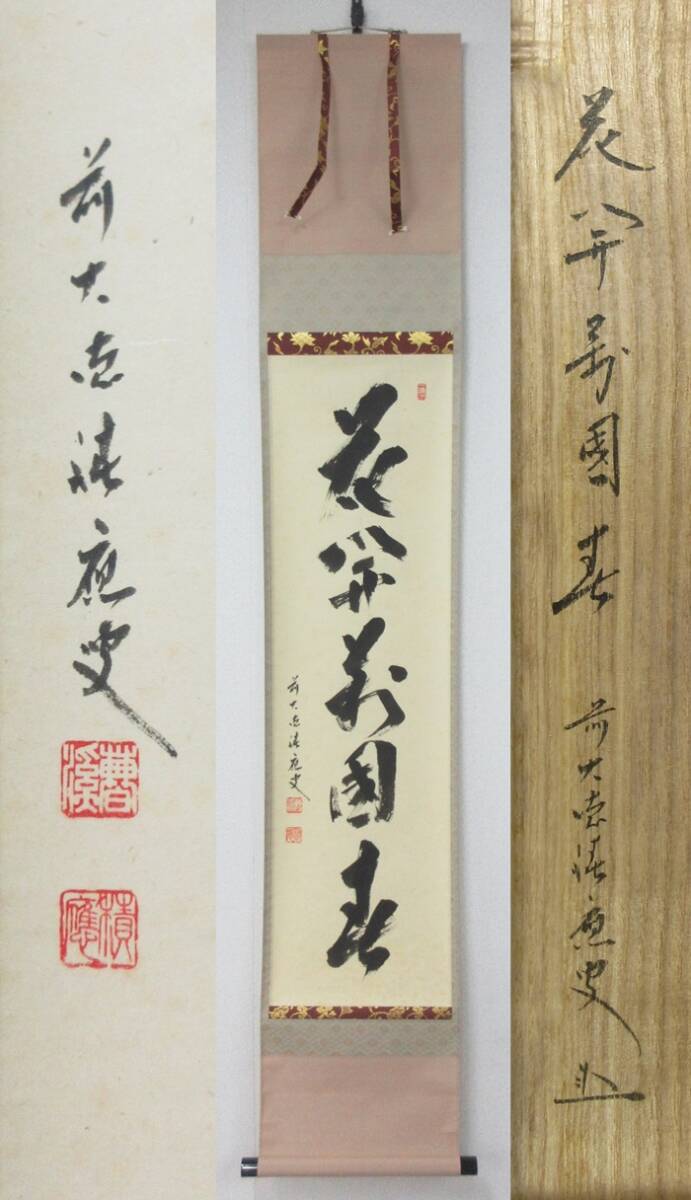 前大徳積應叟
曹溪
積應
花開萬國春
前大徳積應叟
花開萬國春
前大徳積應叟